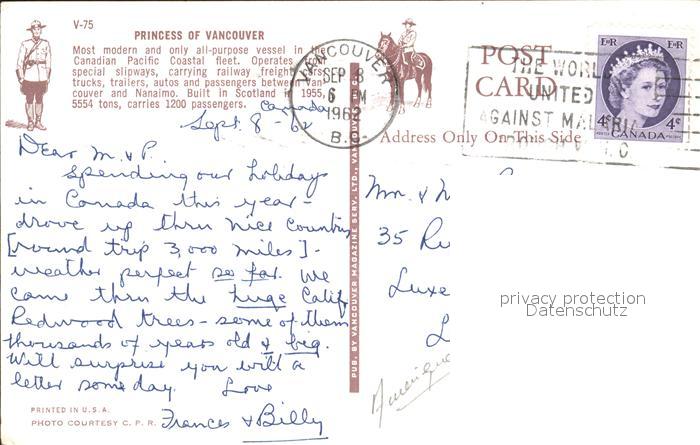 V-75
PRINCESS OF VANCOUVER
Most modern and only all-purpose vessel in the
Canadian Pacific Coastal fleet. Operates from
special slipways, carrying railway freight cars,
trucks, trailers, autos and passengers between Van-
couver and Nanaimo. Built in Scotland in 1955,
5554 tons, carries 1200 passengers.
Canada
Sept. 8 - 62
Dear M. & P.
Spending our holidays
in Canada this year -
drove up thru nice country
[round trip 3,000 miles] -
weather perfect so far. We
came thru the huge Calif
Redwood trees - some of them
thousands of years old & big.
Will surprise you with a
letter some day. Love
Frances & Billy
PRINTED IN U.S.A.
PHOTO COURTESY C. P. R.
PUB. BY VANCOUVER MAGAZINE SERV. LTD., VANCOUVER
VANCOUVER
SEP 8
6 PM
1962
B.
THE WORLD
UNITED
AGAINST MALARIA
POST
CARD
Address Only On This Side
E R
E R
4¢
4¢
CANADA
35 Ru
Luxe
L
Amérique
privacy protection
Datenschutz